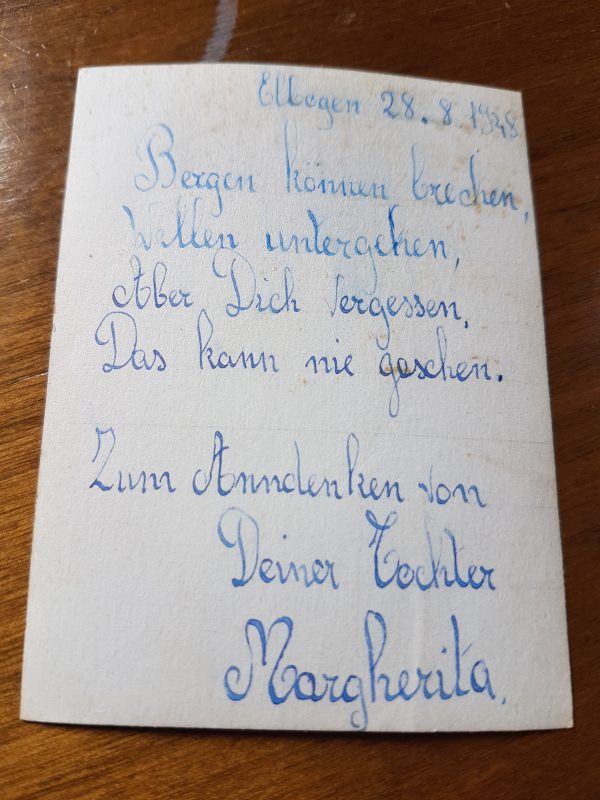 Elbogen 28. 8. 1948
Bergen können brechen,
Wellen untergehen,
Aber Dich vergessen,
Das kann nie geschen.
Zum Anndenken von
Deiner Tochter
Margherita.